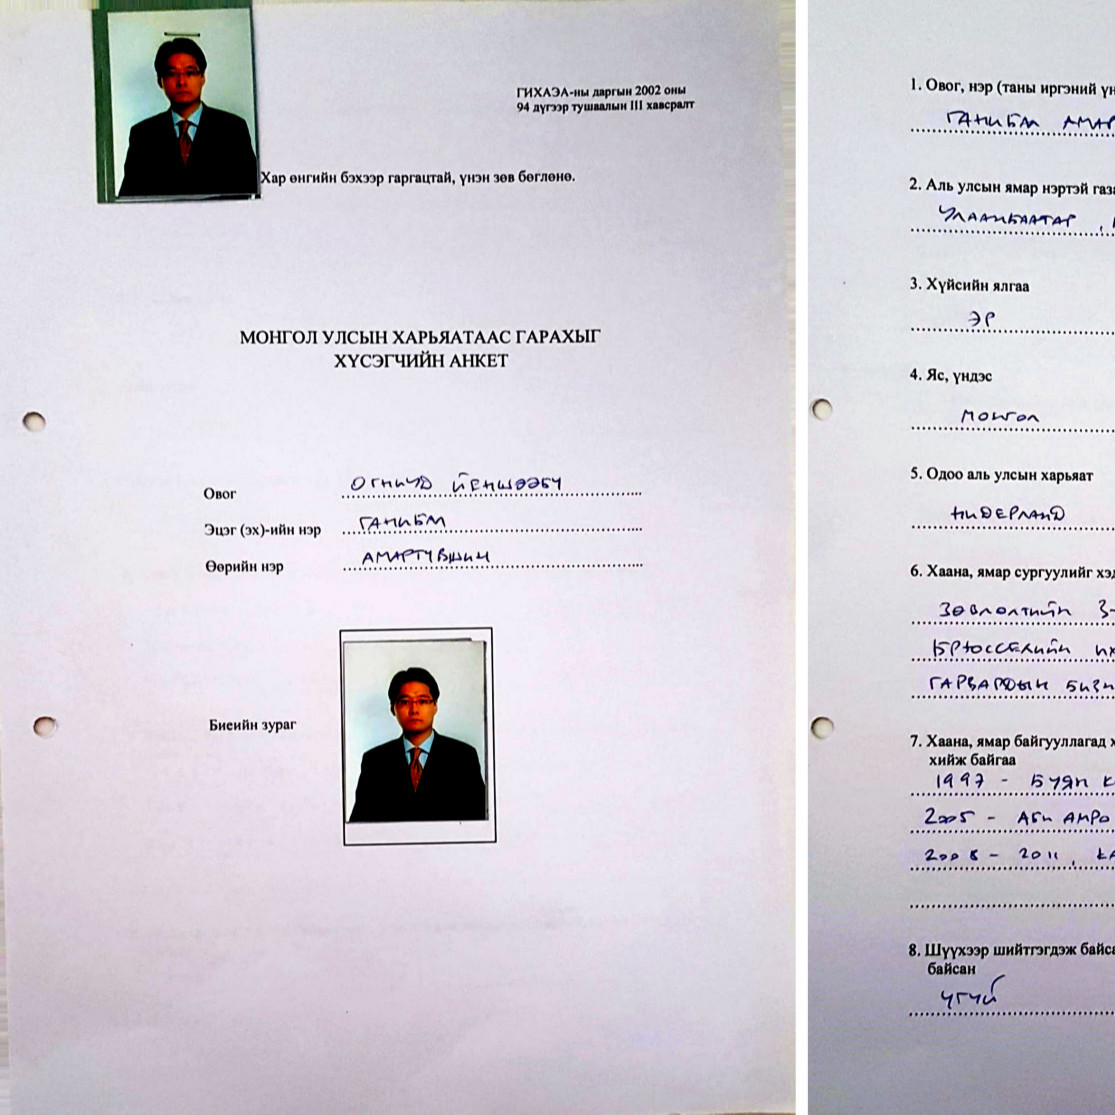 ГИХАЭА-ны даргын 2002 оны
94 дүгээр тушаалын III хавсралт
Хар өнгийн бэхээр гаргацтай, үнэн зөв бөглөнө.
МОНГОЛ УЛСЫН ХАРЬЯАТААС ГАРАХЫГ
ХҮСЭГЧИЙН АНКЕТ
Овог ОГНИУД ЙЕНШӨӨБҮ
Эцэг (эх)-ийн нэр ГАНИБМ
Өөрийн нэр АМАРТҮВШИН
Биеийн зураг
1. Овог, нэр (таны иргэний үн
ГАНИБМ АМАР
2. Аль улсын ямар нэртэй газа
УЛААНБААТАР ,
3. Хүйсийн ялгаа
ЭР
4. Яс, үндэс
МОНГОЛ
5. Одоо аль улсын харьяат
НИДЕРЛАНД
6. Хаана, ямар сургуулийг хэд
ЗӨВЛӨЛТИЙН 3-
БРЮССЕЛИЙН ИХ
ГАРВАРДЫН БИЗН
7. Хаана, ямар байгууллагад х
хийж байгаа
1997 - БУЯН К
2005 - АБН АМРО
2008 - 2011, КА
8. Шүүхээр шийтгэгдэж байса
байсан
ҮГҮЙ